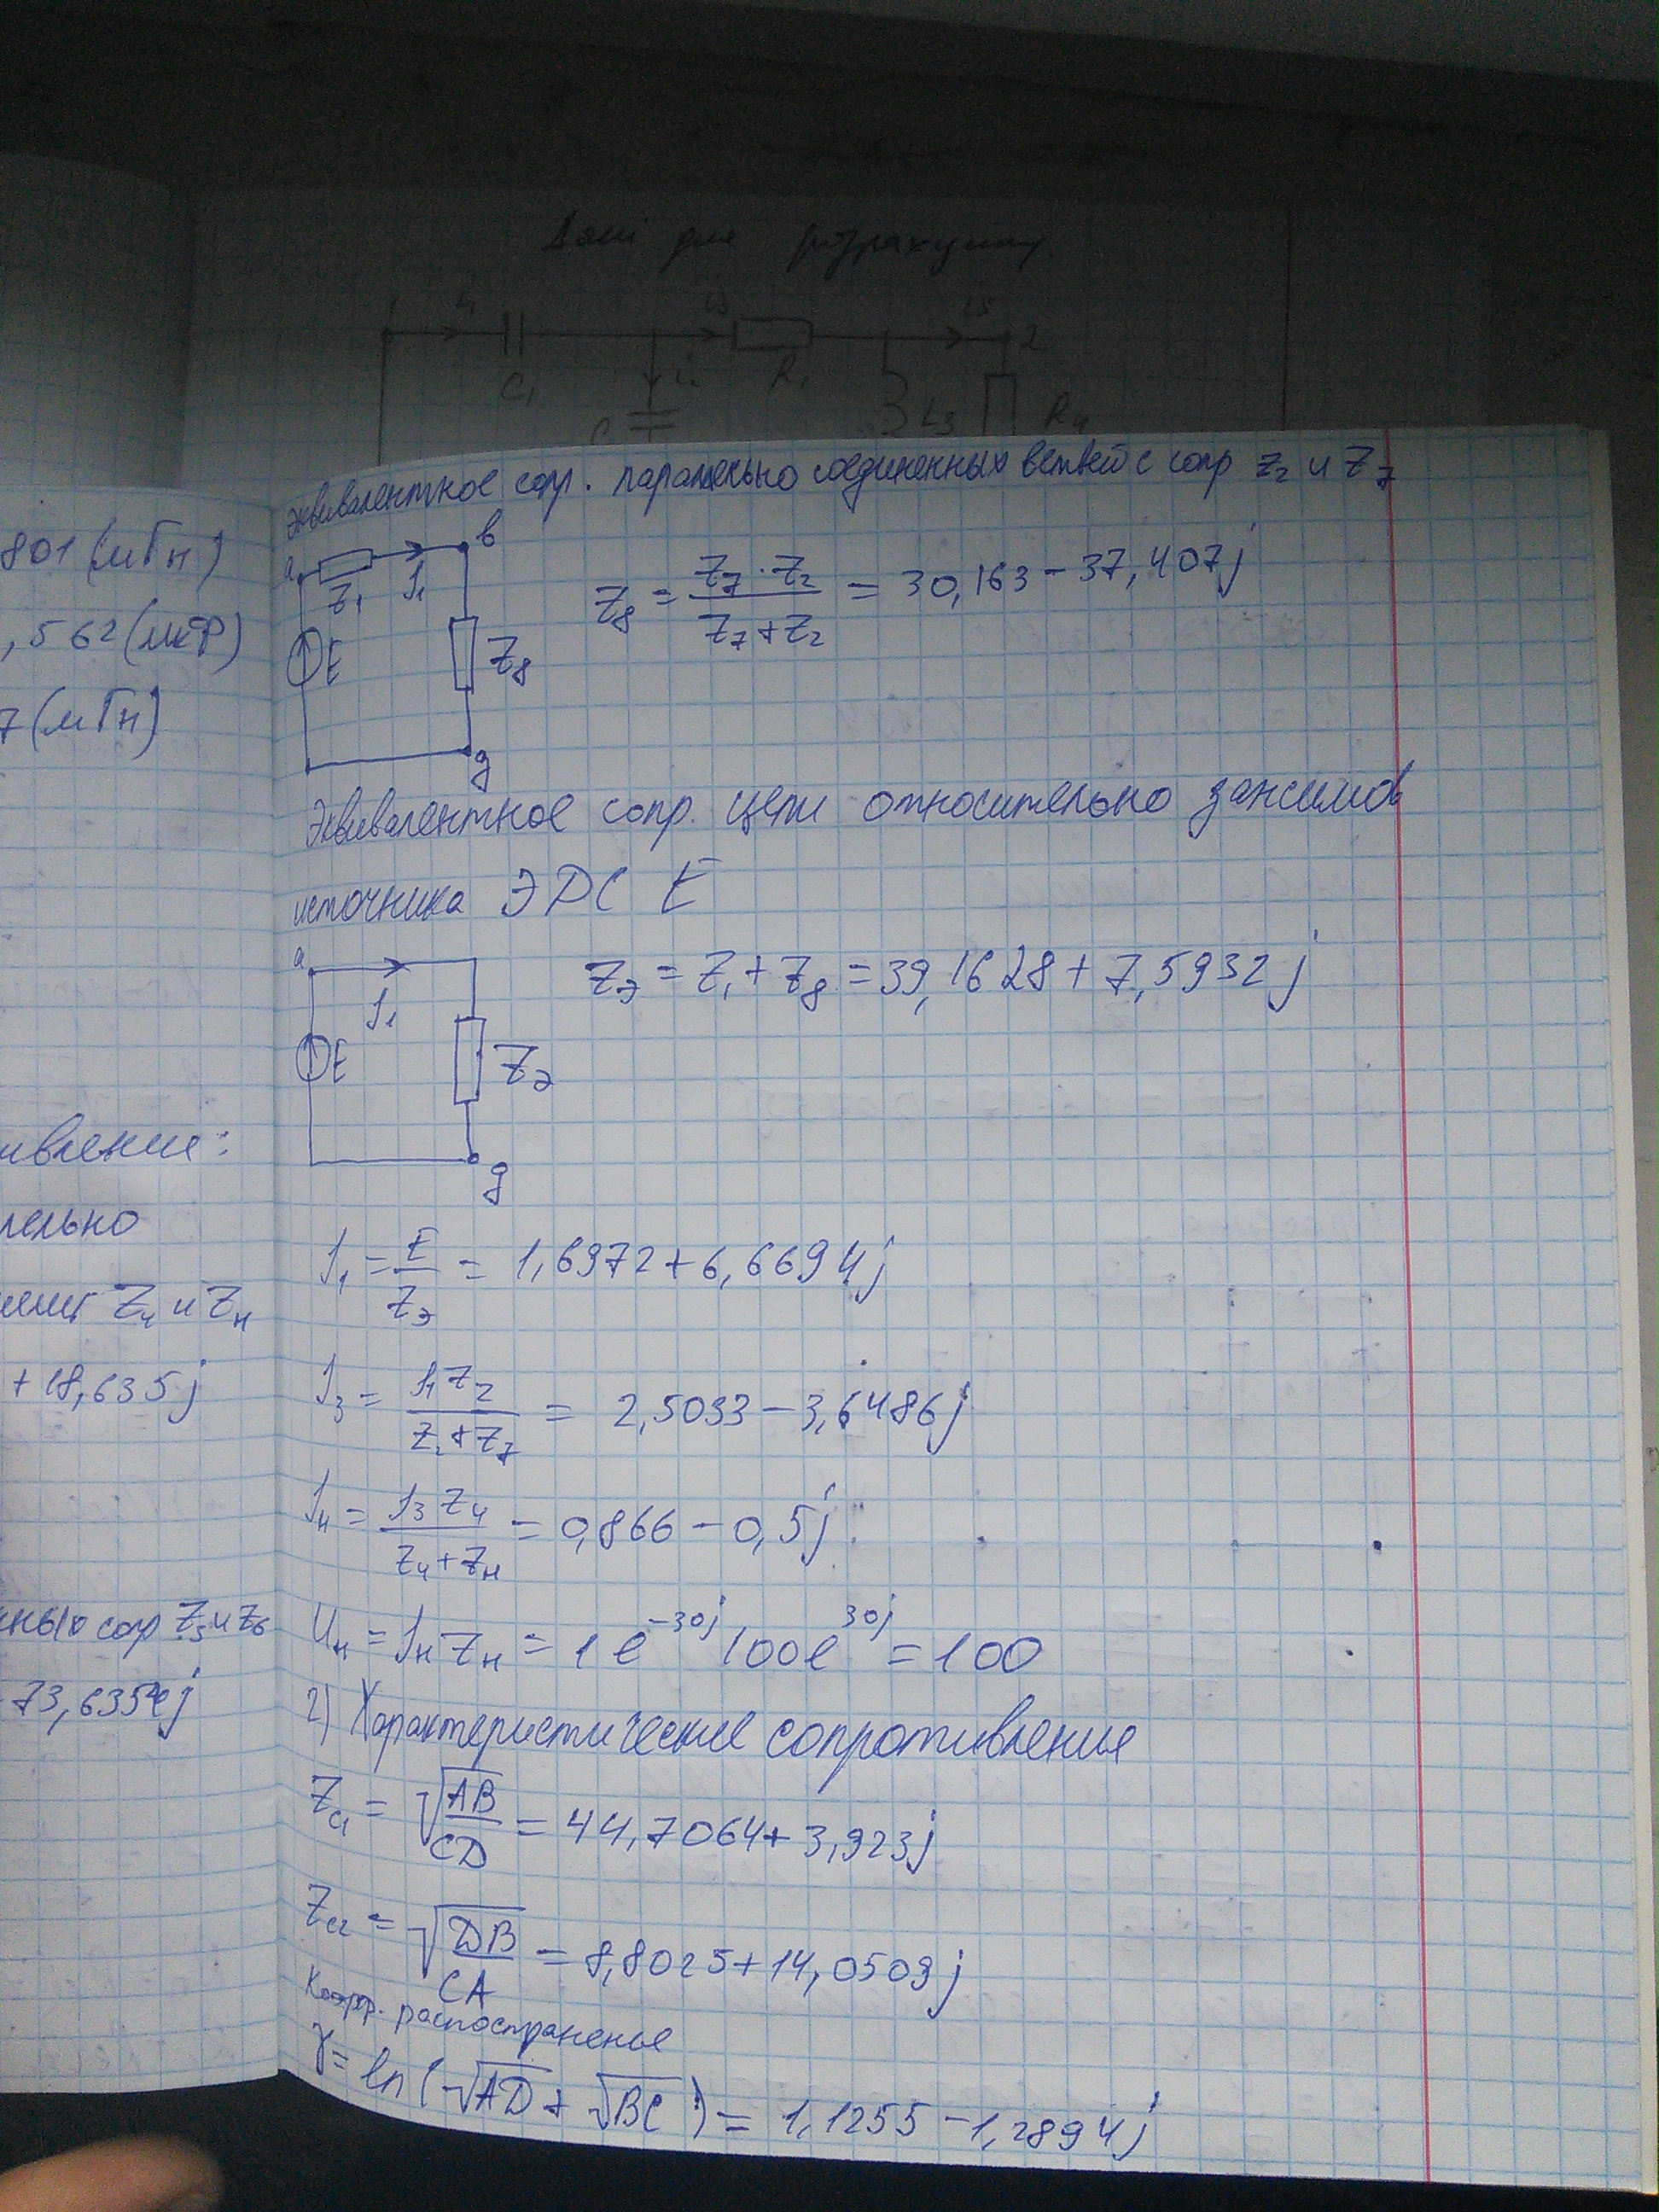 Дані для розрахунку
C₁
i₃
R₁
i₅
2
L₃
R₄
801 (мГн)
,562 (мкФ)
7 (мГн)
ивление:
лельно
Z₄ и Zн
+ 18,635j
нных сопр Z₅ и Z₆
Эквивалентное сопр. паралельно соединенных ветвей с сопр Z₂ и Z₇
a
Z₁
I₁
b
E
Z₈
g
Z₈ = (Z₇·Z₂)/(Z₇+Z₂) = 30,163 - 37,407j
Эквивалентное сопр. цепи относительно зажимов
источника ЭДС E
a
I₁
E
Zэ
g
Zэ = Z₁ + Z₈ = 39,1628 + 7,5932j
I₁ = E/Zэ = 1,6972 + 6,6694j
I₃ = (I₁Z₂)/(Z₂+Z₇) = 2,5033 - 3,6486j
Iн = (I₃Z₄)/(Z₄+Zн) = 0,866 - 0,5j
Uн = IнZн = 1e^(-30j) 100e^(30j) = 100
2) Характеристические сопротивления
Zc₁ = √(AB/CD) = 44,7064 + 3,923j
Zc₂ = √(DB/CA) = 8,8025 + 14,0509j
Коэфф. распостраненье
γ = ln(√AD + √BC) = 1,1255 - 1,2894j